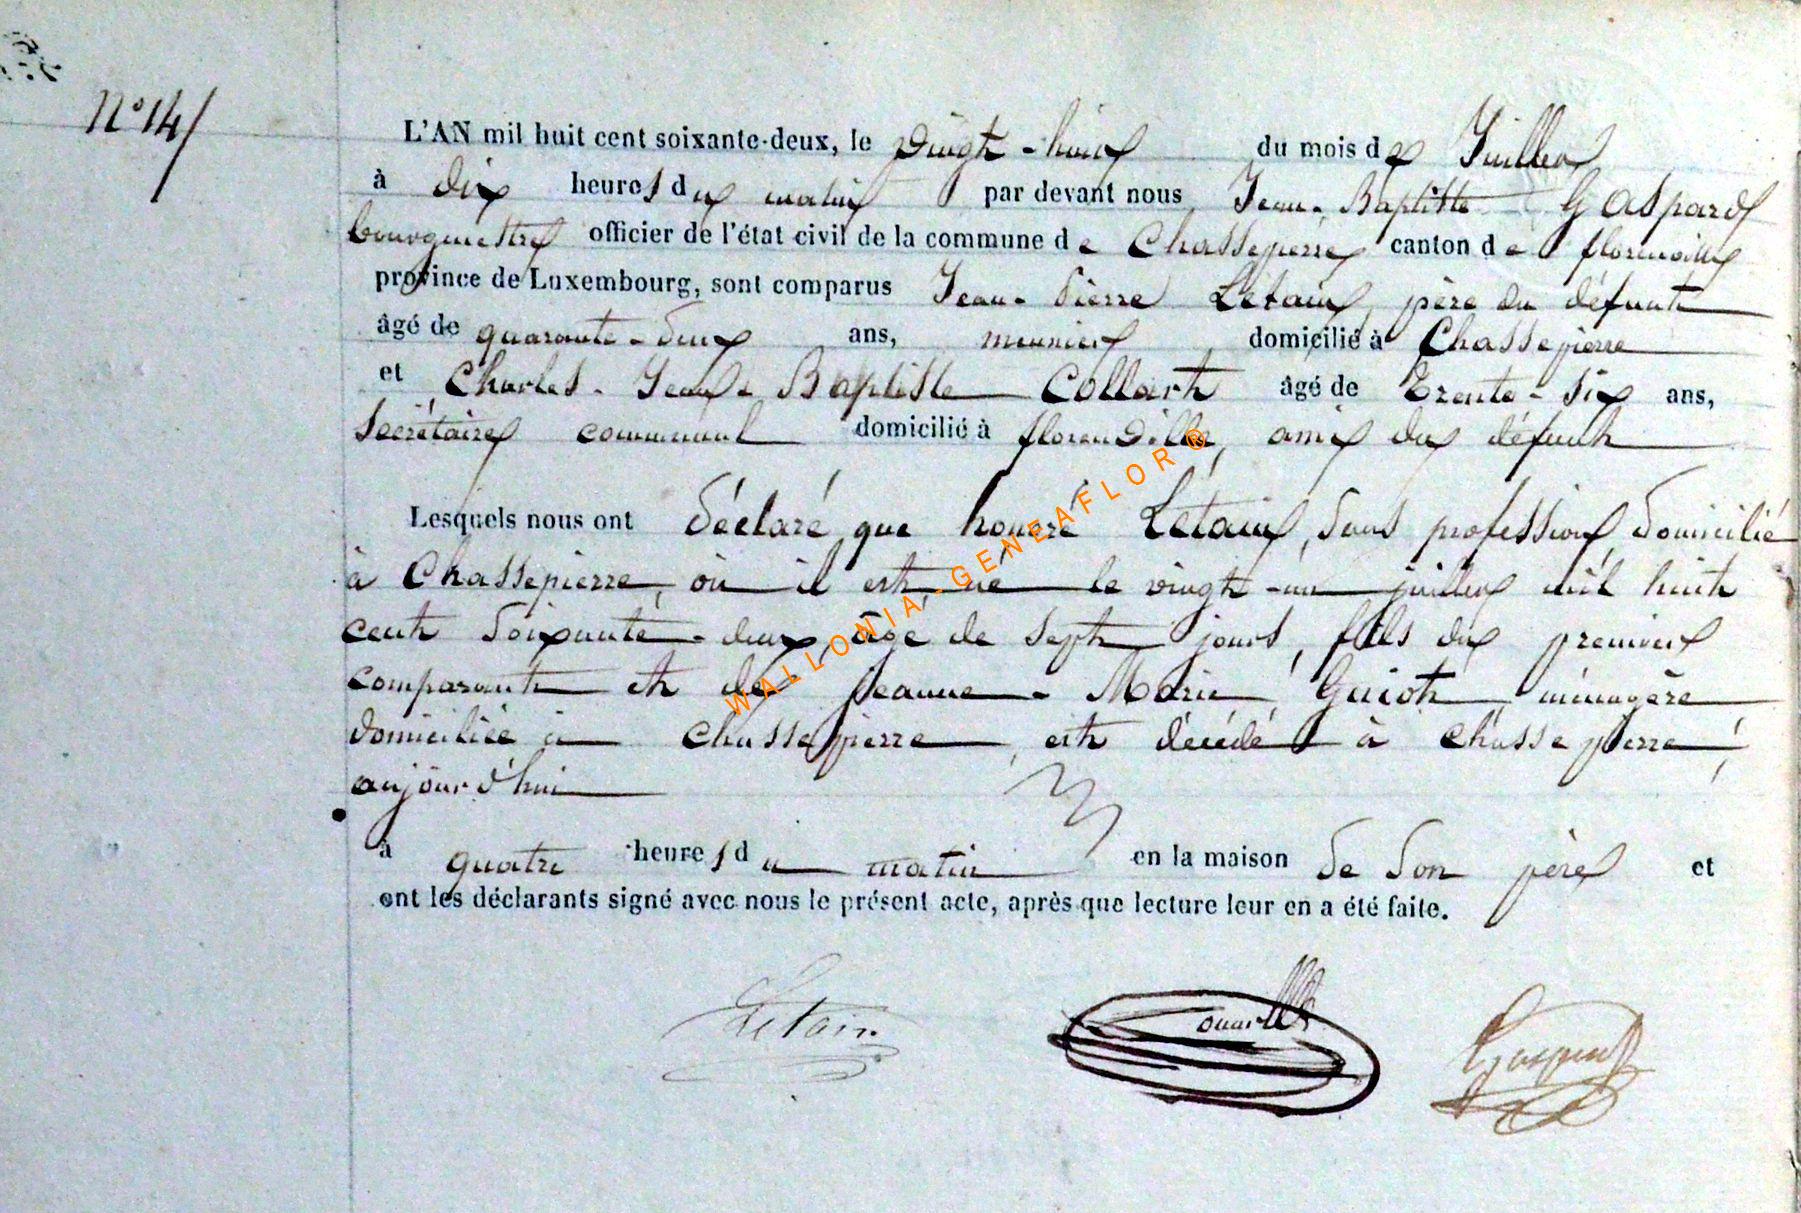 N° 14/
L'AN mil huit cent soixante-deux, le vingt-huit du mois de Juillet
à dix heures du matin par devant nous Jean-Baptiste Gaspard
bourgmestre officier de l'état civil de la commune de Chassepierre canton de florenville
province de Luxembourg, sont comparus Jean-Pierre Létain, père du défunt
âgé de quarante-deux ans, meunier domicilié à Chassepierre
et Charles-Jean-Baptiste Collart âgé de trente-six ans,
secrétaire communal domicilié à florenville, ami du défunt
Lesquels nous ont déclaré que honoré Létain, sans profession, domicilié
à Chassepierre, où il est né le vingt-un juillet mil huit
cent soixante-deux, âgé de sept jours, fils du premier
comparant et de jeanne-Marie Guiot, ménagère
domiciliée à Chassepierre, est décédé à Chassepierre,
aujourd'hui
à quatre heures du matin en la maison de son père et
ont les déclarants signé avec nous le présent acte, après que lecture leur en a été faite.
Letain Gaspard
WALLONIA-GENEAFLOR®